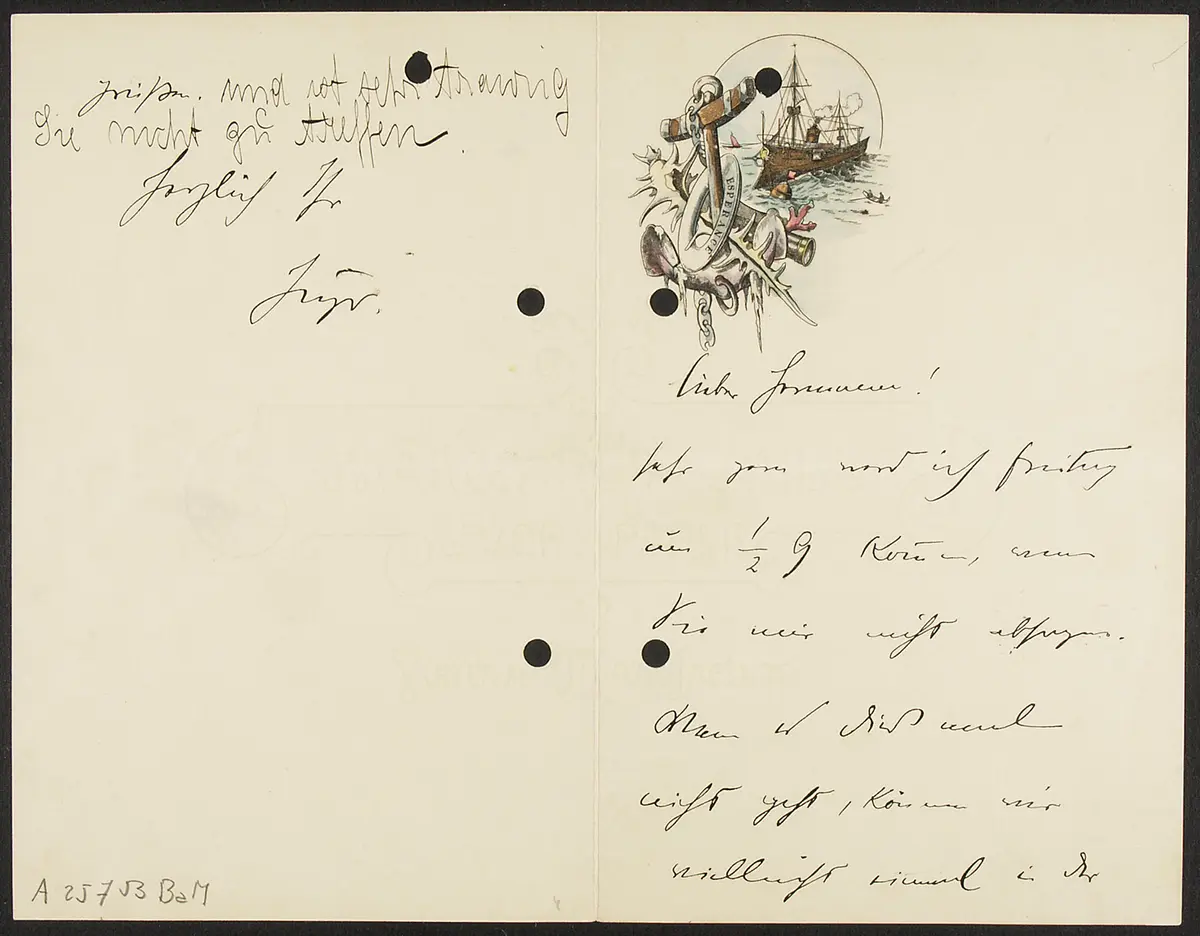 grüßen. und ist sehr traurig
Sie nicht zu treffen.
Herzlich Ihr
Hugo.
A 25753 BaM
ESPERANCE
Lieber Hermann!
sehr gern werd ich Freitag
um 1/2 9 kommen, wenn
Sie mir nicht absagen.
Wenn es diesmal
nicht geht, können wir
vielleicht einmal in der